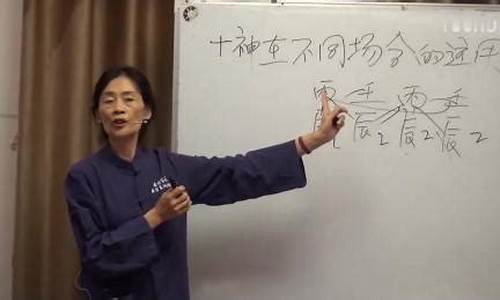 十神在不同场合的运
丙 壬 丙 壬
辰2 辰2 辰2